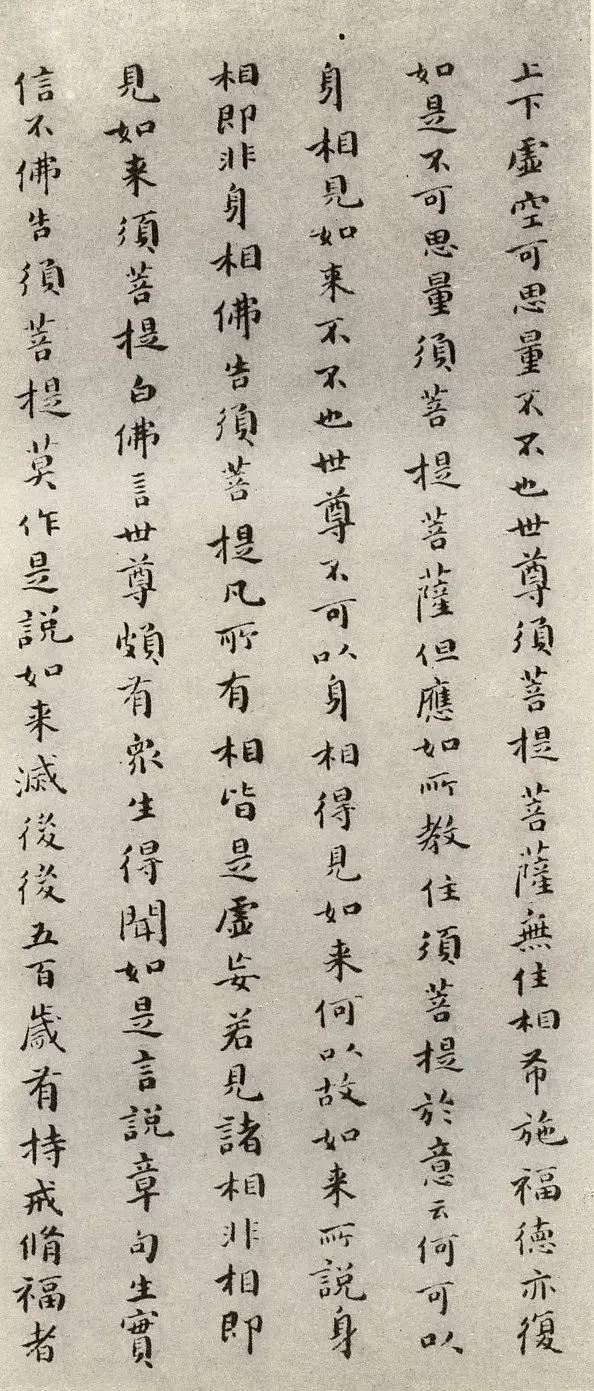 上下虛空可思量不不也世尊須菩提菩薩無住相布施福德亦復
如是不可思量須菩提菩薩但應如所教住須菩提於意云何可以
身相見如来不不也世尊不可以身相得見如来何以故如来所說身
相即非身相佛告須菩提凡所有相皆是虛妄若見諸相非相即
見如来須菩提白佛言世尊頗有衆生得聞如是言說章句生實
信不佛告須菩提莫作是說如来滅後後五百歲有持戒脩福者